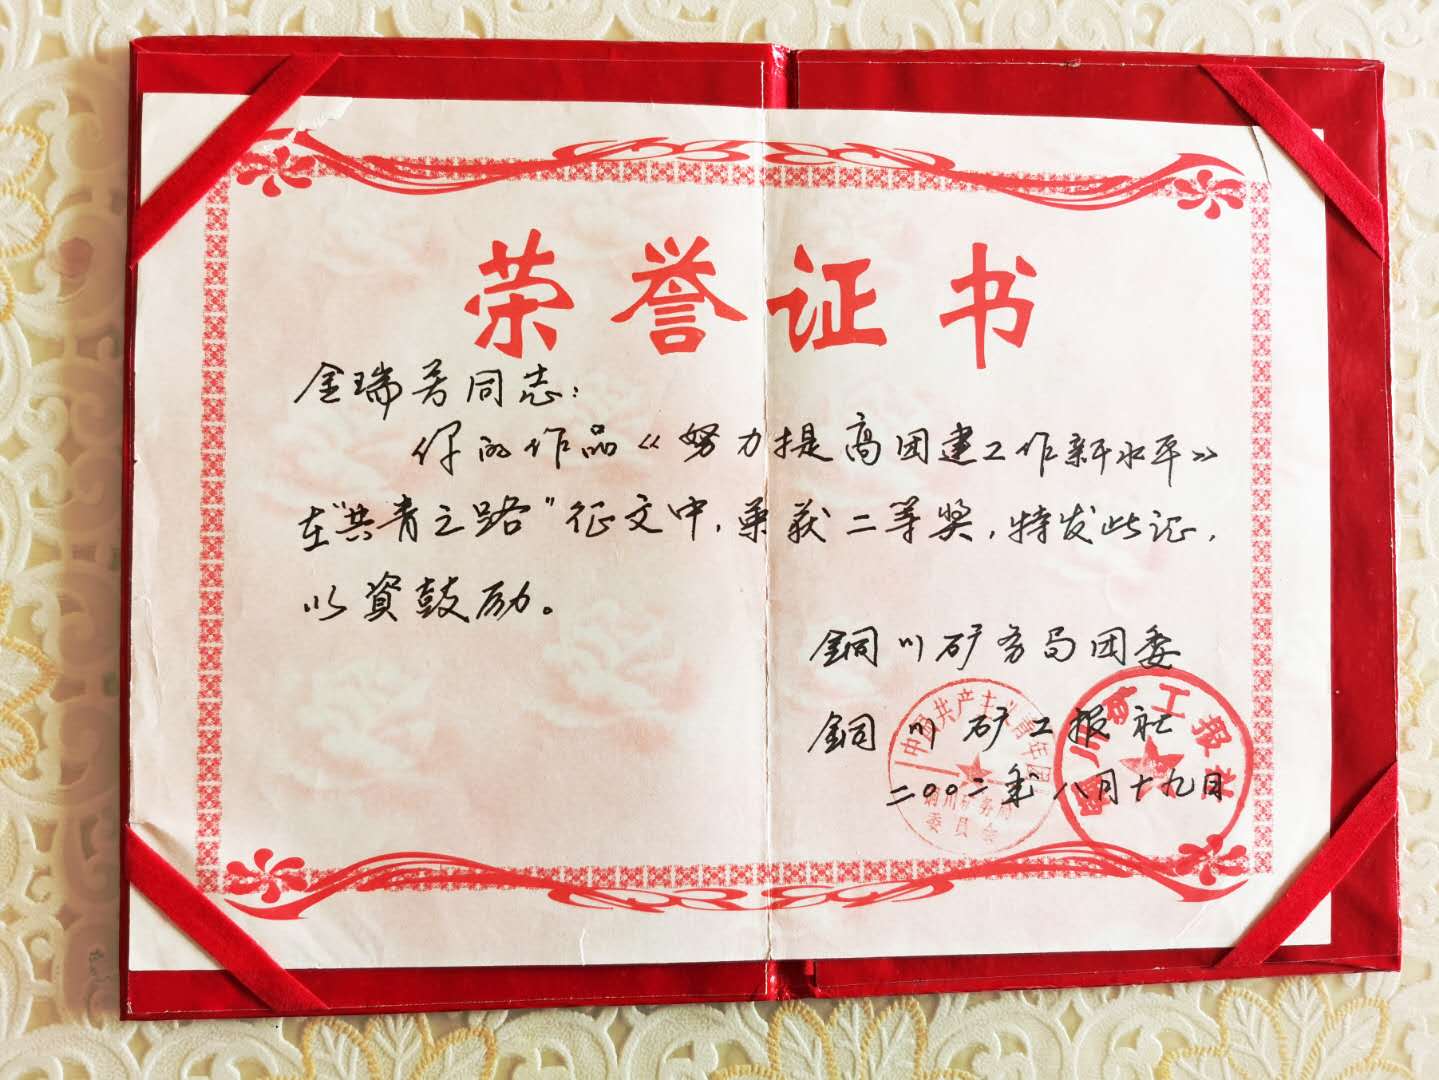 荣誉证书
金瑞芳同志：
你的作品《努力提高团建工作新水平》
在“共青之路”征文中，荣获二等奖，特发此证，
以资鼓励。
銅川矿务局团委
銅川矿工报社
二〇〇二年八月十九日
中国共产主义青年团
铜川矿务局
委员会
铜川矿工报社